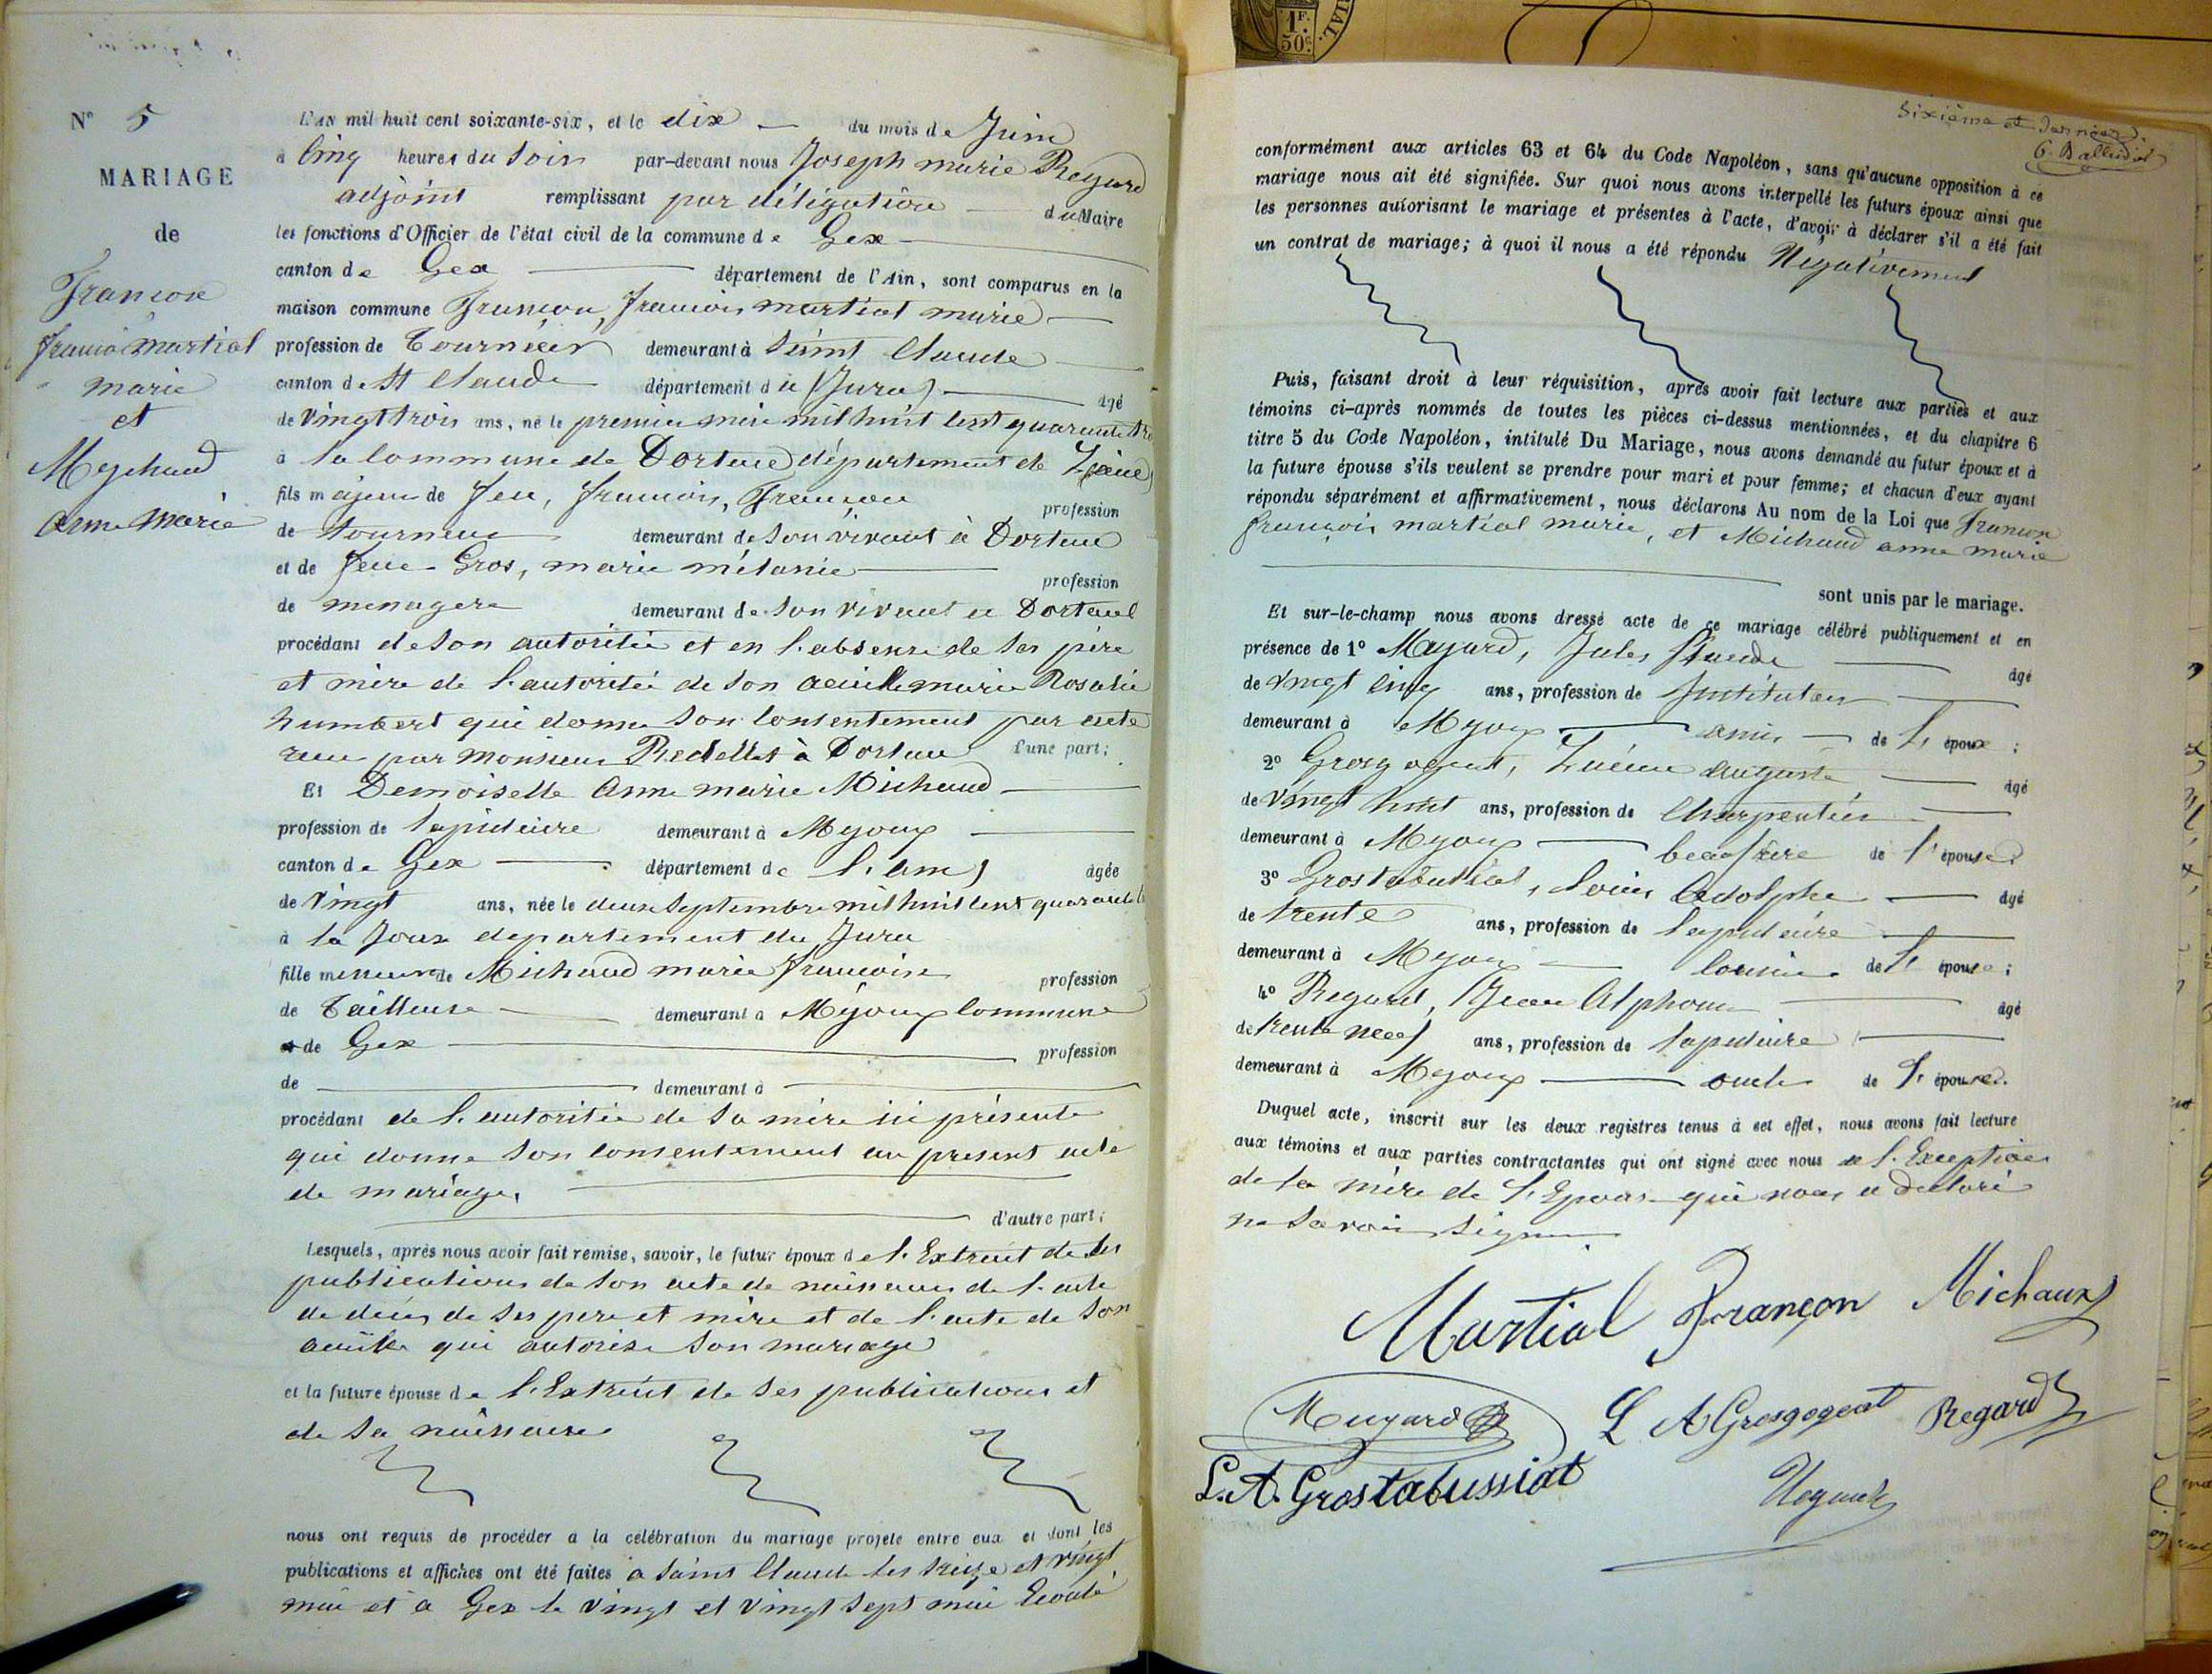 N° 5
MARIAGE
de
Françon
François Martial
marie
et
Michaud
Anne Marie
L'AN mil huit cent soixante-six, et le dix du mois de Juin
à Cinq heures du Soir par-devant nous Joseph marie Regard
adjoint remplissant par délégation du Maire
les fonctions d'Officier de l'état civil de la commune de Gex
canton de Gex département de l'Ain, sont comparus en la
maison commune Françon, François martial marie
profession de Tourneur demeurant à Saint Claude
canton de St Claude département du (Jura) âgé
de Vingt trois ans, né le premier mai mil huit Cent quarante tro
à la Commune de Dortan département de
fils majeur de feu, François, Françon profession
de tourneur demeurant de Son vivant à Dortan
et de feue Gros, marie mélanie profession
de menagere demeurant de Son vivant à Dortan
procédant de Son autoritée et en l'absence de Ses père
et mère de l'autoritée de Son aeuille marie Rosalie
humbert qui donne Son Consentement par acte
reçu par Monsieur à Dortan d'une part;
Et Demoiselle Anne marie Michaud
profession de lapidaire demeurant à Mijoux
canton de Gex département de l'ain) âgée
de Vingt ans, née le deux Septembre mil huit Cent quarante
à la Joux departement du Jura
fille mineure de Michaud marie françoise profession
de Tailleuse demeurant à Mijoux Commune
et de Gex profession
de demeurant à
procédant de l'autoritée de Sa mère ici présente
qui donne Son Consentement au présent acte
de mariage.
d'autre part;
Lesquels, après nous avoir fait remise, savoir, le futur époux de l'Extrait de Ses
publications de Son acte de naissance de l'acte
de déces de Ses pere et mère et de l'acte de Son
aeuille qui autorise Son mariage
et la future épouse de l'Extrait de Ses publications et
de Sa naissance
nous ont requis de procéder à la célébration du mariage projeté entre eux et dont les
publications et affiches ont été faites à Saint Claude les treize et vingt
mai et à Gex le Vingt et Vingt Sept mai Ecoulé
1F.
50c.
Sixième et dernier
conformément aux articles 63 et 64 du Code Napoléon, sans qu'aucune opposition à ce
mariage nous ait été signifiée. Sur quoi nous avons interpellé les futurs époux ainsi que
les personnes autorisant le mariage et présentes à l'acte, d'avoir à déclarer s'il a été fait
un contrat de mariage; à quoi il nous a été répondu Négativement
Puis, faisant droit à leur réquisition, après avoir fait lecture aux parties et aux
témoins ci-après nommés de toutes les pièces ci-dessus mentionnées, et du chapitre 6
titre 5 du Code Napoléon, intitulé Du Mariage, nous avons demandé au futur époux et à
la future épouse s'ils veulent se prendre pour mari et pour femme; et chacun d'eux ayant
répondu séparément et affirmativement, nous déclarons Au nom de la Loi que Françon
françois martial marie, et Michaud anne marie
sont unis par le mariage.
Et sur-le-champ nous avons dressé acte de ce mariage célébré publiquement et en
présence de 1° Mugard, Jules Claude âgé
de Vingt Cinq ans, profession de Instituteur
demeurant à Mijoux amis de l' époux;
2° Grosgogeat, Lucien auguste âgé
de Vingt huit ans, profession de Charpentier
demeurant à Mijoux beaufrère de l' épouse.
3° Grostabussiat, Louis Adolphe âgé
de trente ans, profession de lapidaire
demeurant à Mijoux Cousin de l' épouse;
4° Regard, Jean Alphonse âgé
de trente neuf ans, profession de lapidaire
demeurant à Mijoux oncle de l' épouse.
Duquel acte, inscrit sur les deux registres tenus à cet effet, nous avons fait lecture
aux témoins et aux parties contractantes qui ont signé avec nous a l'Exception
de la mère de l'Epouse qui nous a declaré
ne Savoir Signer
Martial Françon Michaux
Mugard L A Grosgogeat Regard
L.A. Grostabussiat Regard